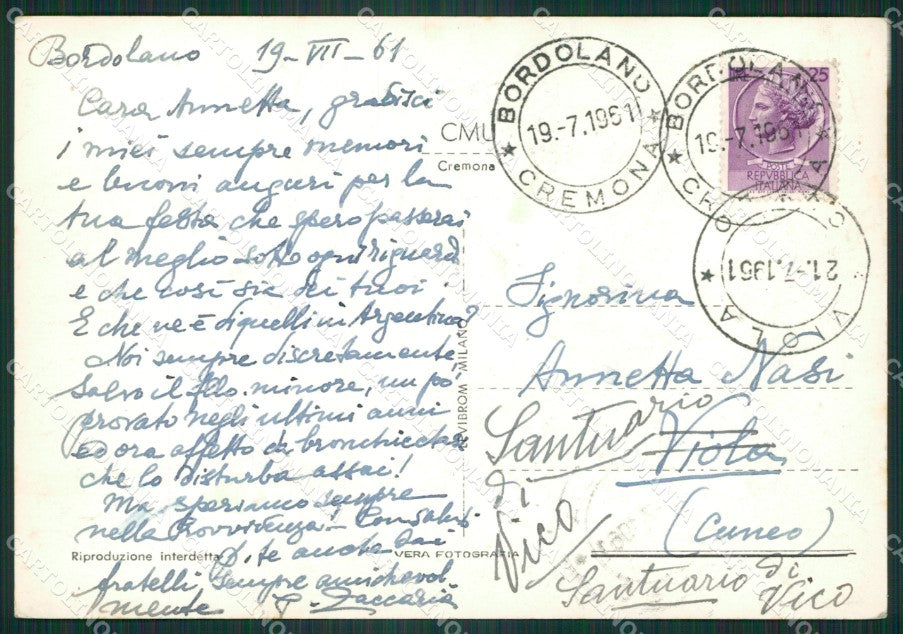 Bordolano 19-VII-61
Cara Annetta, gradisci
i miei sempre memori
e buoni auguri per la
tua festa che spero passerai
al meglio sotto ogni riguardo
e che così sia dei tuoi.
E che ne è di quelli in Argentina?
Noi sempre discretamente
salvo il fllo minore, un po
provato negli ultimi anni
ed ora affetto da bronchiectasie
che lo disturba assai!
Ma speriamo sempre
nella Provvidenza! Con saluti
a te anche dai
fratelli, sempre amichevol-
mente P. Zaccaria
CMU
Cremona
Riproduzione interdetta
VERA FOTOGRAFIA
VIBROM - MILANO
BORDOLANO
19.-7.1961
* CREMONA *
BORDOLANO
19.-7.1961
25
POSTE
REPVBBLICA
ITALIANA
VIOLA
21.-7.1961
Signorina
Annetta Nasi
Viola
(Cuneo)
Santuario
di
Vico
Santuario di
Vico